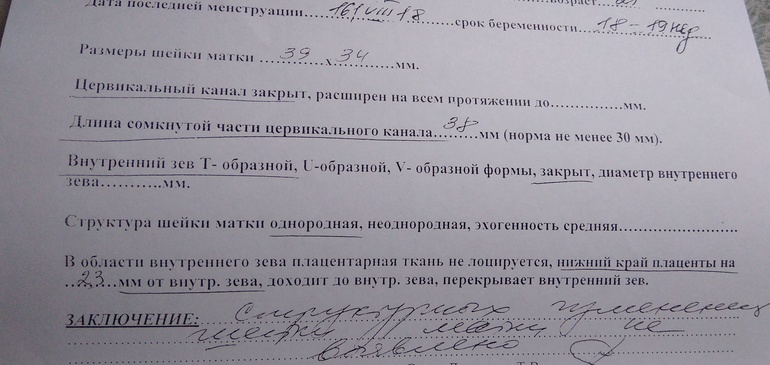 Дата последней менструации....16/VIII 18......срок беременности...18-19нед
Размеры шейки матки ....39...х.34....мм.
Цервикальный канал закрыт, расширен на всем протяжении до.............мм.
Длина сомкнутой части цервикального канала...38...мм (норма не менее 30 мм).
Внутренний зев Т- образной, U-образной, V- образной формы, закрыт, диаметр внутреннего
зева...........мм.
Структура шейки матки однородная, неоднородная, эхогенность средняя......................
В области внутреннего зева плацентарная ткань не лоцируется, нижний край плаценты на
..23...мм от внутр. зева, доходит до внутр. зева, перекрывает внутренний зев.
ЗАКЛЮЧЕНИЕ: Структурных изменений
шейки матки не
выявлено